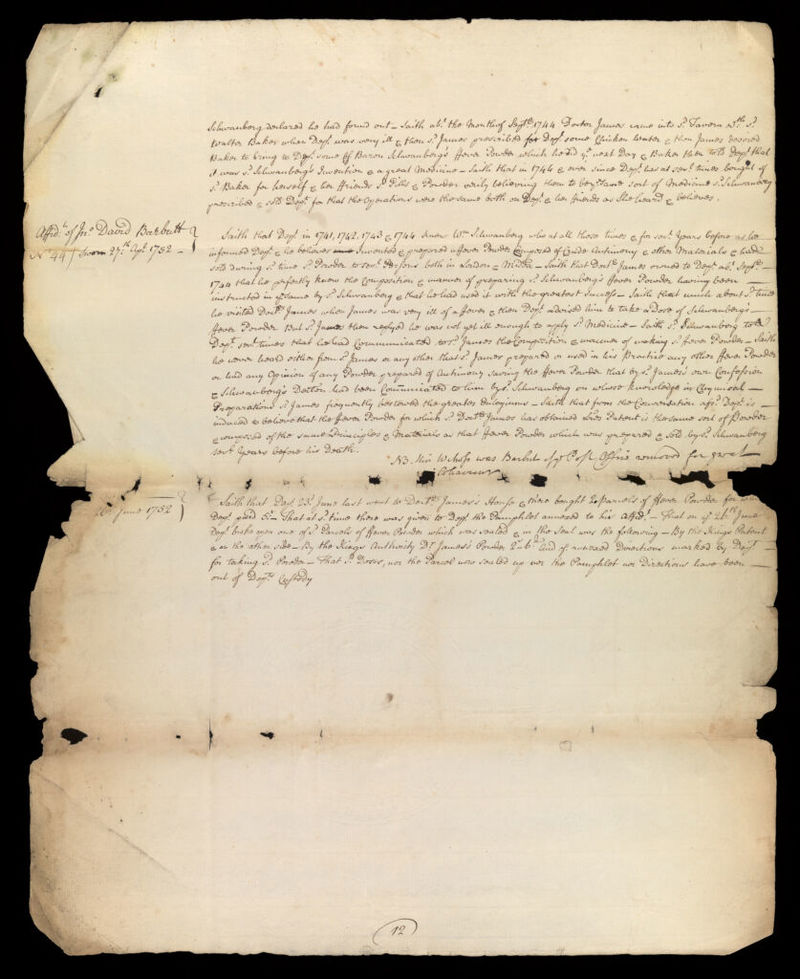 Schwanberg declared he had found out – Saith abt. the Month of Sepr. 1744 Doctor James came into Sd. Tavern wth. Sd.
Walter Baker when Dept. was very ill & then Sd. James prescribed for Dept. some Chicken Water & then James desired
Baker to bring to Dept. some of Baron Schwanberg's ffever Powder which he did ye. next Day & Baker then told Dept. that
it was Sd. Schwanberg's Invention & a great Medicine – Saith that in 1744 & ever since Dept. has at sevl. times bought of
Sd. Baker for herself & her ffriends Sd. Pills & Powder verily believing them to be ye. same sort of Medicine Sd. Schwanberg
prescribed & sold Dept. for that the Operations were the same both on Dept. & her friends as She heard & believes.
Affidt. of Jno. David Barbutt
No. 44 Sworn 27th. Apl. 1752 –
Saith that Dept. in 1741, 1742, 1743 & 1744 knew Wm. Schwanberg who at all those times & for sevl. Years before as he
informed Dept. & he believes Invented & prepared a ffever Powder Composed of Crude Antimony & other Materials & had
sold during Sd. time Sd. Powder to sevl. Persons both in London & – Saith that Doctr. James owned to Dept. abt. Sepr. –
1744 that he perfectly knew the Composition & manner of preparing Sd. Schwanberg's ffever Powder having been
instructed in ye. same by Sd. Schwanberg & that he had used it with the greatest Success – Saith that much about Sd. time
he visited Doctr. James when James was very ill of a ffever & then Dept. advised him to take a Dose of Schwanberg's
ffever Powder But Sd. James then replyed he was not yet ill enough to apply Sd. Medicine – Saith Sd. Schwanberg told
Dept. sevl. times that he had Communicated to Sd. James the Composition & manner of making Sd. ffever Powder – Saith
he never heard either from Sd. James or any other that Sd. James prepared or used in his Practice any other ffever Powder
or had any Opinion of any Powder prepared of Antimony saving the ffever Powder that by Sd. James's own Confession
& Schwanberg's Decton. had been Communicated to him by Sd. Schwanberg on whose knowledge in Chymical
Preparations Sd. James frequently bestowed the greatest Eulogiums – Saith that from the Conversation afsd. Dept. is
induced to believe that the ffever Powder for which Sd. Doctr. James has obtained his Patent is the same sort of Powder
& composed of the same Principles & Materials as that ffever Powder which was prepared & sold by Sd. Schwanberg
sevl. Years before his Death.
NB. this Witness was Barbut of Office removed for great
behaviour
June 1752
Saith that Dept. 23d. June last went to Doctr. James's House & there bought 2 Parcels of ffever Powder for
Dept. paid 5s. – That at Sd. time there was given to Dept. the Pamphlet annexed to his Affidt. – That on ye. 26th. June
Dept. broke open one of Sd. Parcels of ffever Powder which was sealed & on the Seal was the following – By the Kings Patent
& on the other side – By the Kings Authority Dr. James's Powder 2s. 6d. and ye. annexed Directions marked by Dept.
for taking Sd. Powder – That Sd. Doses, nor the Parcel now sealed up nor the Pamphlet nor Directions have been
out of Depts. Custody
12